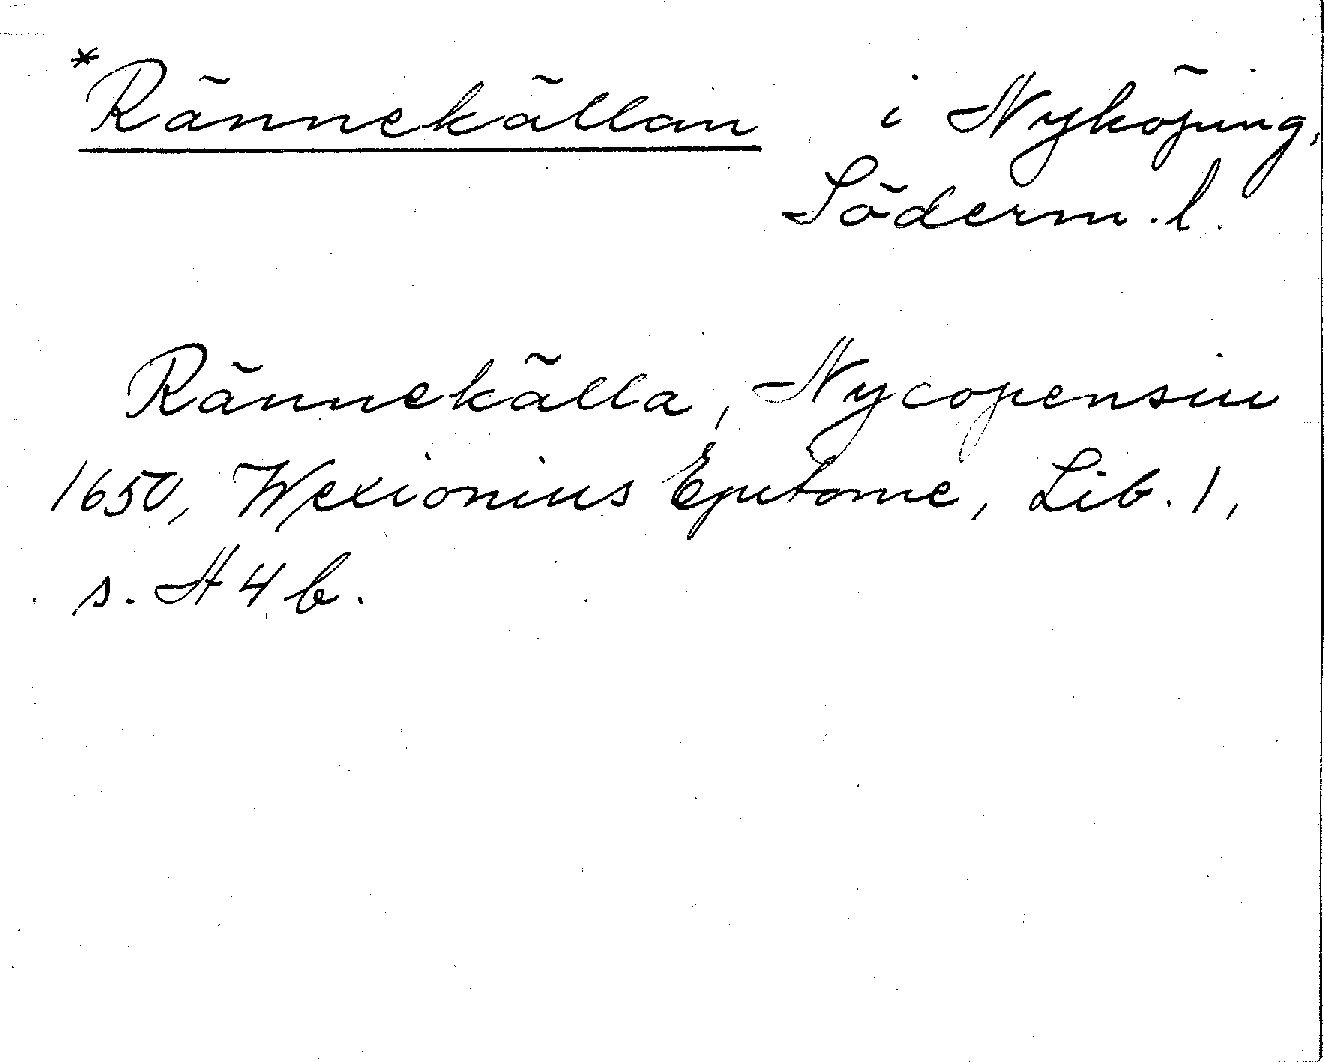 *Rännekällan i Nyköping,
Söderm.l.
Rännekälla, Nycopensiu
1650, Wexionius Epitome, Lib. 1,
s. H 4 b.